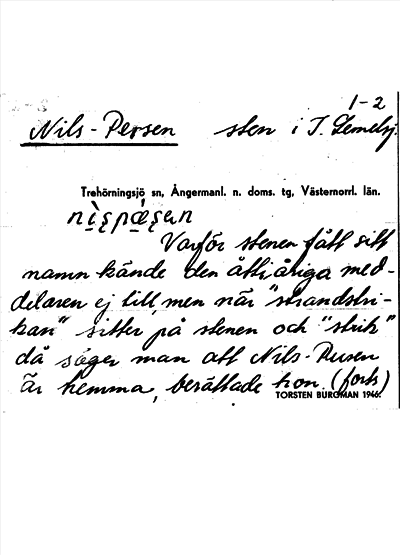 1-2
Nils-Persen sten i T. Gemelsj.
Trehörningsjö sn, Ångermanl. n. doms. tg, Västernorrl. län.
nìspǽsən
Varför stenen fått sitt
namn kände den åttiåriga med-
delaren ej till, men när "strandstri-
kan" sitter på stenen och "strik"
då säger man att Nils-Persen
är hemma, berättade hon. (forts)
TORSTEN BURGMAN 1946.